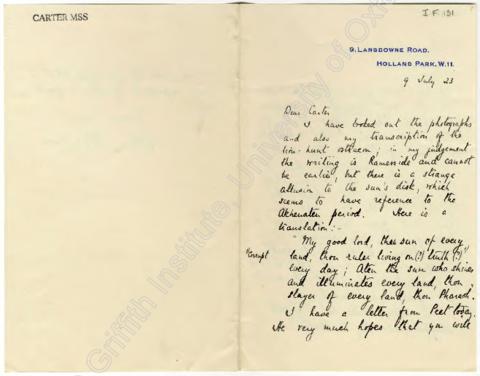 CARTER MSS
I F 131
9, LANSDOWNE ROAD,
HOLLAND PARK, W.11.
9 July 23
Dear Carter
I have looked out the photographs
and also my transcription of the
lion-hunt ostracon; in my judgement
the writing is Rameside and cannot
be earlier, but there is a strange
allusion to the sun's disk, which
seems to have reference to the
Akhenaten period. Here is a
translation:-
"My good lord, thou sun of every
Corrupt land, thou ruler living on(?) truth(?)
every day; Aton the sun who shines
and illuminates every land, thou
slayer of every land, thou Pharaoh.
I have a letter from Peet today.
He very much hopes that you will
Griffith Institute, University of Oxford